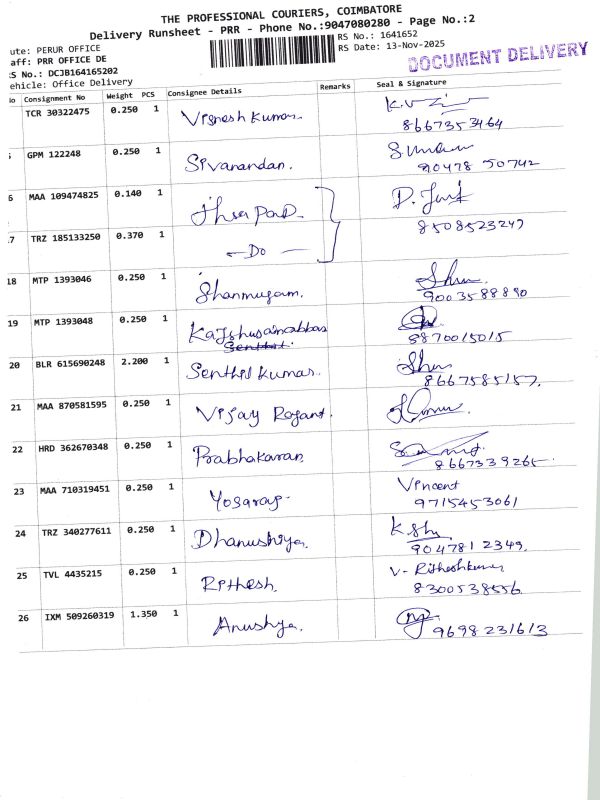 THE PROFESSIONAL COURIERS, COIMBATORE
Delivery Runsheet - PRR - Phone No.:9047080280 - Page No.:2
ute: PERUR OFFICE
RS No.: 1641652
aff: PRR OFFICE DE
RS Date: 13-Nov-2025
DOCUMENT DELIVERY
S No.: DCJB164165202
ehicle: Office Delivery
No Consignment No Weight PCS Consignee Details Remarks Seal & Signature
TCR 30322475 0.250 1 Vignesh Kumar.
8667353464
GPM 122248 0.250 1 Sivanandan.
90478 50742
6 MAA 109474825 0.140 1
7 TRZ 185133250 0.370 1 - Do -
8508523249
18 MTP 1393046 0.250 1 Shanmugam.
9003588890
19 MTP 1393048 0.250 1
8870015015
20 BLR 615690248 2.200 1 Senthil Kumar.
8667585157.
21 MAA 870581595 0.250 1 Vijay Rajant.
22 HRD 362670348 0.250 1 Prabhakaran.
8667339265.
23 MAA 710319451 0.250 1 Yogaraj. Vincent
9715453061
24 TRZ 340277611 0.250 1 Dhanushiya.
9047812349.
25 TVL 4435215 0.250 1 Rithesh. V- Ritheshkumar
8300538556.
26 IXM 509260319 1.350 1 Anushya.
9698231613